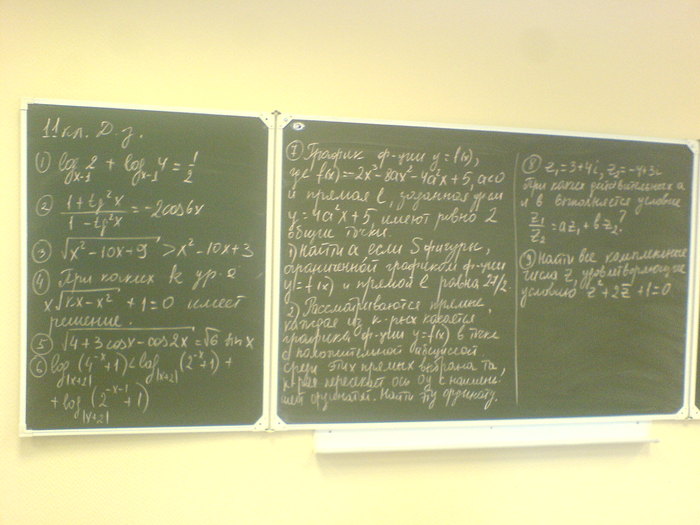 11 кл. Д.з.
① log_{x-1} 2 + log_{x-1} 4 = 1/2
② (1+tg²x)/(1-tg²x) = -2cos6x
③ √(x²-10x+9) > x²-10x+3
④ При каких k ур-е
x√(kx-x²) + 1 = 0 имеет
решение.
⑤ √(4+3cosx-cos2x) = √6 sin x
⑥ log_{|x+2|} (4^{-x}+1) < log_{|x+2|} (2^{-x}+1) +
+ log_{|x+2|} (2^{-x-1}+1)
⑦ График ф-ции y=f(x),
где f(x)=-2x³-8ax²-4a²x+5, a<0
и прямая l, заданная ур-ем
y=4a²x+5, имеют ровно 2
общие точки.
1) Найти a если S фигуры,
ограниченной графиком ф-ции
y=f(x) и прямой l равна 27/2.
2) Рассматриваются прямые,
каждая из к-рых касается
графика ф-ции y=f(x) в точке
с положительной абсциссой
среди этих прямых выбрана та,
к-рая пересекает ось Oy с наимень-
шей ординатой. Найти эту ординату.
⑧ z₁=3+4i, z₂=-4+3i
При каких действительных a
и b выполняется условие
z₁/z₂ = az₁+bz₂?
⑨ Найти все комплексные
числа z, удовлетворяющие
условию z²+2z̄+1=0